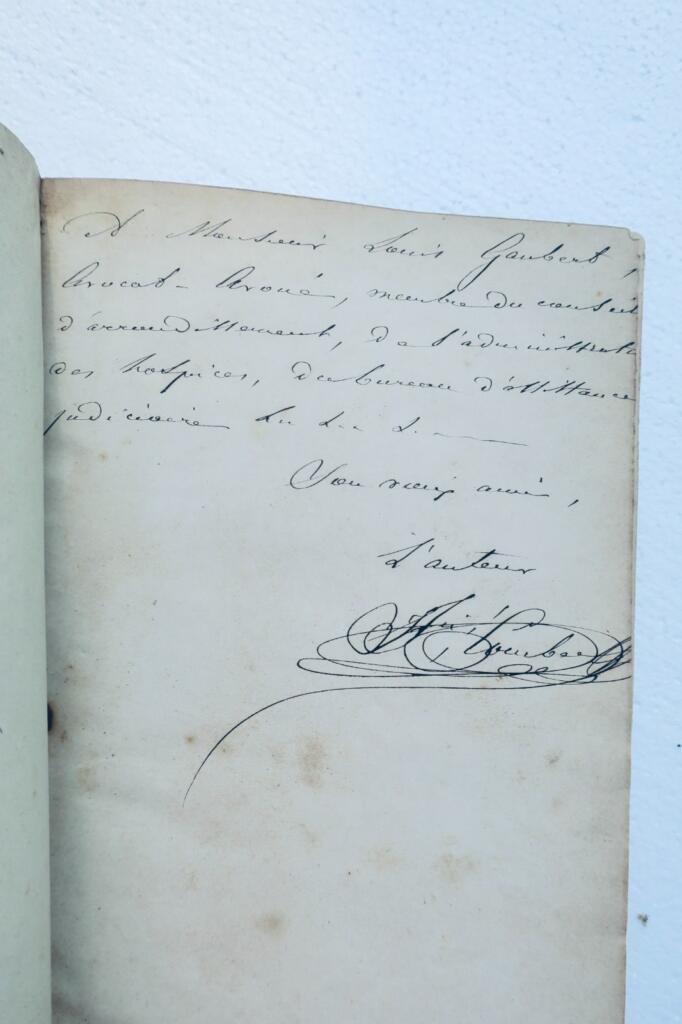 A Monsieur Louis Gaubert,
Avocat-Avoué, membre du conseil
d'arrondissement, de l'administrat
des hospices, du bureau d'assistance
judiciaire
Son vieux ami,
L'auteur